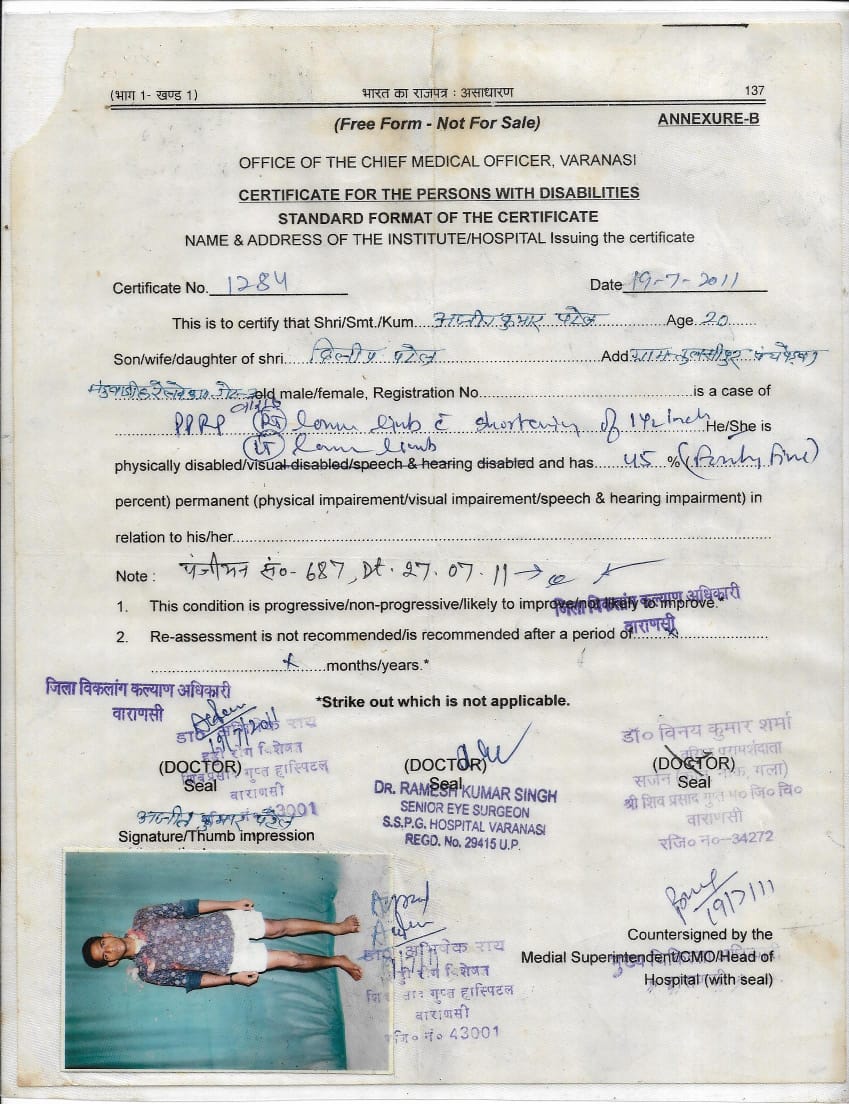 (भाग 1- खण्ड 1) भारत का राजपत्र : असाधारण 137
(Free Form - Not For Sale) ANNEXURE-B
OFFICE OF THE CHIEF MEDICAL OFFICER, VARANASI
CERTIFICATE FOR THE PERSONS WITH DISABILITIES
STANDARD FORMAT OF THE CERTIFICATE
NAME & ADDRESS OF THE INSTITUTE/HOSPITAL Issuing the certificate
Certificate No. 1284 Date 19-7-2011
This is to certify that Shri/Smt./Kum. अजीत कुमार पटेल Age 20
Son/wife/daughter of shri. दिलीप पटेल Add ग्राम तुलसीपुर
old male/female, Registration No. is a case of
PPRP (Rt) lower limb c shortening of 1 1/2 inch He/She is
(LT) lower limb
physically disabled/visual disabled/speech & hearing disabled and has 45 % (Forty Five)
percent) permanent (physical impairement/visual impairement/speech & hearing impairment) in
relation to his/her
Note : पंजीयन सं०- 687, Dt. 27.07.11
1. This condition is progressive/non-progressive/likely to improve/not likely to improve.*
जिला विकलांग कल्याण अधिकारी
वाराणसी
2. Re-assessment is not recommended/is recommended after a period of
x months/years.*
*Strike out which is not applicable.
जिला विकलांग कल्याण अधिकारी
वाराणसी
19/7/2011
राय
हड्डी रोग विशेषज्ञ
गुप्त हास्पिटल
वाराणसी
43001
(DOCTOR)
Seal
अजीत कुमार पटेल
Signature/Thumb impression
(DOCTOR)
Seal
DR. RAMESH KUMAR SINGH
SENIOR EYE SURGEON
S.S.P.G. HOSPITAL VARANASI
REGD. No. 29415 U.P.
डॉ० विनय कुमार शर्मा
वरिष्ठ परामर्शदाता
(DOCTOR)
Seal
सर्जन गला)
श्री शिव प्रसाद गुप्त म० जि० चि०
वाराणसी
रजि० न०-34272
डा० अभिषेक राय
हड्डी रोग विशेषज्ञ
गुप्त हास्पिटल
वाराणसी
रजि० नं० 43001
19/7/11
Countersigned by the
Medial Superintendent/CMO/Head of
Hospital (with seal)